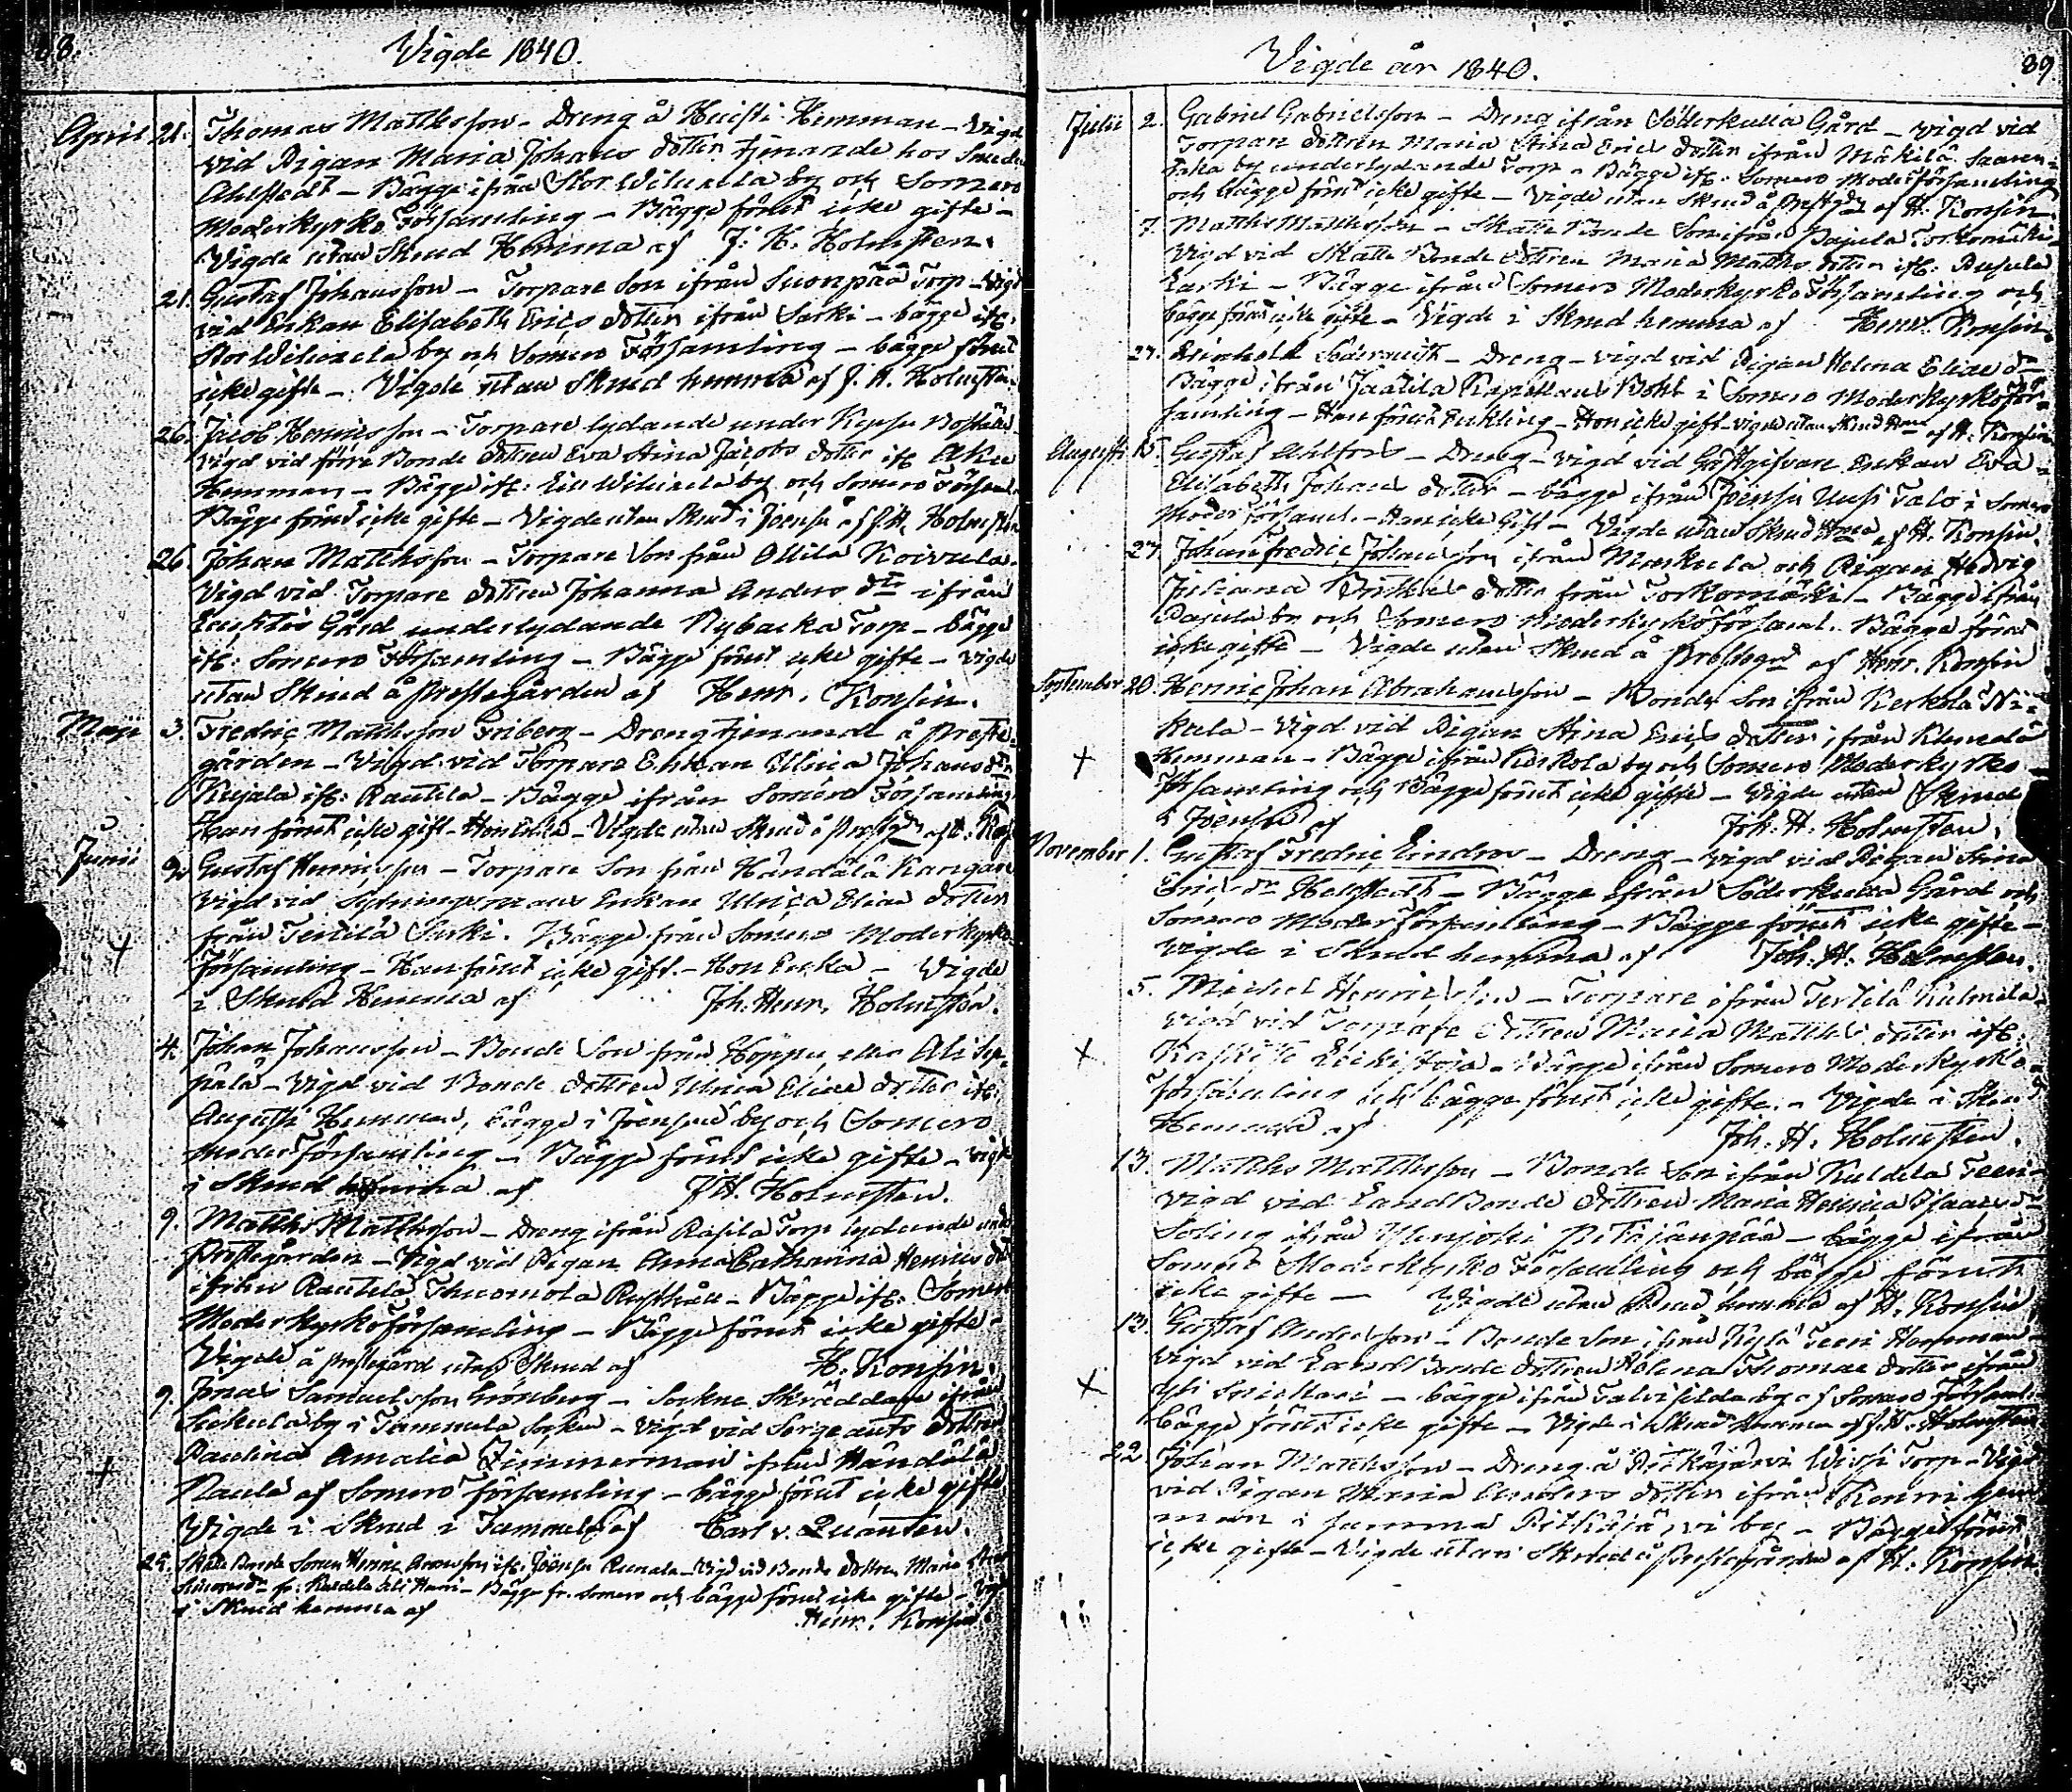 88.
Vigde 1840.
April 21. Thomas Matthsson - Dreng å Heisti Hemman - Vigd
vid Pigan Maria Johans dotter tjenande hos Smeden
Ahlstedt - Bägge ifrån Stor Wiluxela by och Somero
Moderkyrko Församling - Bägge förut icke gifte -
Vigde utan Skrud Hemma af J. H. Holmsten.
21. Gustaf Johansson - Torpare Son ifrån Suonpää Torp - Vigd
vid Enkan Elisabeth Erics dotter ifrån Sarki - bägge ifr.
Stor Wiluxela by och Somero Församling - bägge förut
icke gifte - Vigde utan Skrud hemma af J. H. Holmsten.
26. Jacob Henricsson - Torpare lydande under Boställe
vigd vid förre Bonde dottren Eva Stina Jacobs dotter ifr.
Hemman - Bägge ifr. Lill Wiluxela by och Somero Församl.
Bägge förut icke gifte - Vigde utan Skrud i Joensu af J. H. Holmsten
26. Johan Matthsson - Torpare Son från Ollila Koivula.
Vigd vid Torpare dottren Johanna Anders dtr ifrån
Gård underlydande Nybacka Torp - bägge
ifr: Somero Församling - Bägge förut icke gifte - Vigde
utan Skrud å Prestegården af Henr. Konsin.
Maji 3. Fredric Matthsson Friberg - Dreng tjenande å Preste-
gården - Vigd vid Torpare Enkan Ulrica Johans dtr
Kujala ifr: Rautela - Bägge ifrån Somero Församling
Han förut icke gift - Hon Enka - Vigde utan Skrud å Prestgdn af H. Kons
Junii 9. Gustaf Henricsson - Torpare Son från Håndålå Kangare
Vigd vid Sytningsmans Enkan Ulrica Eliae dotter
från Terttilä Sarki. Bägge från Somero Moderkyrko
Församling - Han förut icke gift. - Hon Enka - Vigde
i Skrud Hemma af Joh. Henr. Holmsten.
4. Johan Johansson - Bonde Son från Hoppu eller Ali Sep-
pälä - Vigd vid Bonde dottren Ulrica Eliae dotter ifr:
Augusti Hemman, bägge i Joensuu by och Somero
moder Församling - Bägge förut icke gifte - vigde
i Skrud hemma af J H. Holmsten.
9. Matths Matthsson - Dreng ifrån Rasila Torp lydande under
Prestegården - Vigd vid Pigan Anna Catharina Henrics dtr
ifrån Rautela Thuomola Rusthåll - Bägge ifr: Somero
Moderkyrkoförsamling - Bägge förut icke gifte -
Vigde å prestegård utan Skrud af H. Konsin.
9. Jonas Samuelsson Grönberg - Sockne Skräddare ifrån
Sukula by i Tammela Socken - Vigd vid Sergeants dottren
Paulina Amalia Zimmerman ifrån Håndålå
Naula af Somero församling - bägge förut icke gifte
Vigde i Skrud i Tammela af Carl v. Quanten.
25. Skatte Bonde Sonen Henric ifr: Joensu - Vigd vid Bonde dottren Maria
fr: Kuldela - Bägge fr. Somero och bägge förut icke gifte - Vigde
i Skrud hemma af Henr. Konsin.
89
Vigde år 1840.
Julii 2. Gabriel Gabrielsson - Dreng ifrån Söderkulla Gård - vigd vid
Torpare dottren Maria Stina Erics dotter ifrån Mäkilä Saaren-
by underlydande Torp - Bägge ifr. Somero Moderförsamling
och bägge förut icke gifte - Vigde utan Skrud å Prestgdn af H. Konsin.
7. Matths Matthsson - Skatte Bonde Son ifrån Pajula Torkomäki.
Vigd vid Skatte Bonde dottren Maria Matths dotter ifr: Pajula
- Bägge ifrån Somero Moderkyrko Församling och
bägge förut icke gifte - Vigde i Skrud hemma af Henr. Konsin.
27. Reinhold - Dreng - vigd vid Pigan Helena Eliae dtr
Bägge ifrån Jaatila Kapellans Bohl i Somero Moderkyrkoför-
samling - Han förut Enkling - Hon icke gift - vigde utan Skrud Hema af H. Konsin
Augusti 15. Gustaf Ahlfors - Dreng - vigd vid Gästgifvare Enkan Eva
Elisabeth Johans dotter - bägge ifrån Joensu Uusi Talo i Somero
Moder församl. - Han icke Gift - Vigde utan Skrud Hema af H. Konsin.
27. Johan Fredric Johansson ifrån Markula och Pigan Hedvig
Juliana dotter från Torkomäki - Bägge ifrån
Pajula by och Somero Moderkyrkoförsaml. Bägge förut
icke gifte - Vigde utan Skrud å Prestegrd af Henr. Konsin
September 20. Henric Johan Abrahamsson - Bonde Son ifrån Kerkola Ni-
kula - Vigd vid Pigan Stina Erics dotter ifrån
Hemman - Bägge ifrån Kerkola by och Somero Moderkyrko
Församling och Bägge förut icke gifte - Vigde utan Skrud
i Joensu af Joh. H. Holmsten.
November 1. Gustaf Fredric Lindros - Dreng - vigd vid Pigan Stina
Erics dr Hellstedt - Bägge ifrån Söderkulla Gård och
Somero Moder församling - Bägge förut icke gifte -
Vigde i Skrud hemma af Joh. H. Holmsten.
5. Michel Henricsson - Torpare ifrån Terttilä Kulmala
Vigd vid Torpare dottren Maria Matths dotter ifr:
- Bägge ifrån Somero Moderkyrko
församling och bägge förut icke gifte. - Vigde i Skrud
Hemma af Joh. H. Holmsten.
13. Matths Matthsson - Bonde Son ifrån Kuldela Teeri
Vigd vid Land Bonde dottren Maria Henrica Isaacs dr
Soling ifrån Ylenjoki Pitkäjänpää - bägge ifrån
Somero Moderkyrko Församling och bägge förut
icke gifte - Vigde utan Skrud hemma af H. Konsin.
13. Gustaf Andersson - Bonde Son ifrån Teeri Hemman
Vigd vid Land Bonde dottren Helena Thomae dotter ifrån
- bägge ifrån by af Somero församl.
bägge förut icke gifte - Vigde i Skrud Hemma af J. H. Holmsten
22 Johan Matthsson - Dreng å Pitkäjärvi Torp - Vigd
vid Pigan Maria Anders dotter ifrån hem-
man i samma Pitkäjärvi by - Bägge förut
icke gifte - Vigde utan Skrud å Prestegården af H. Konsin.